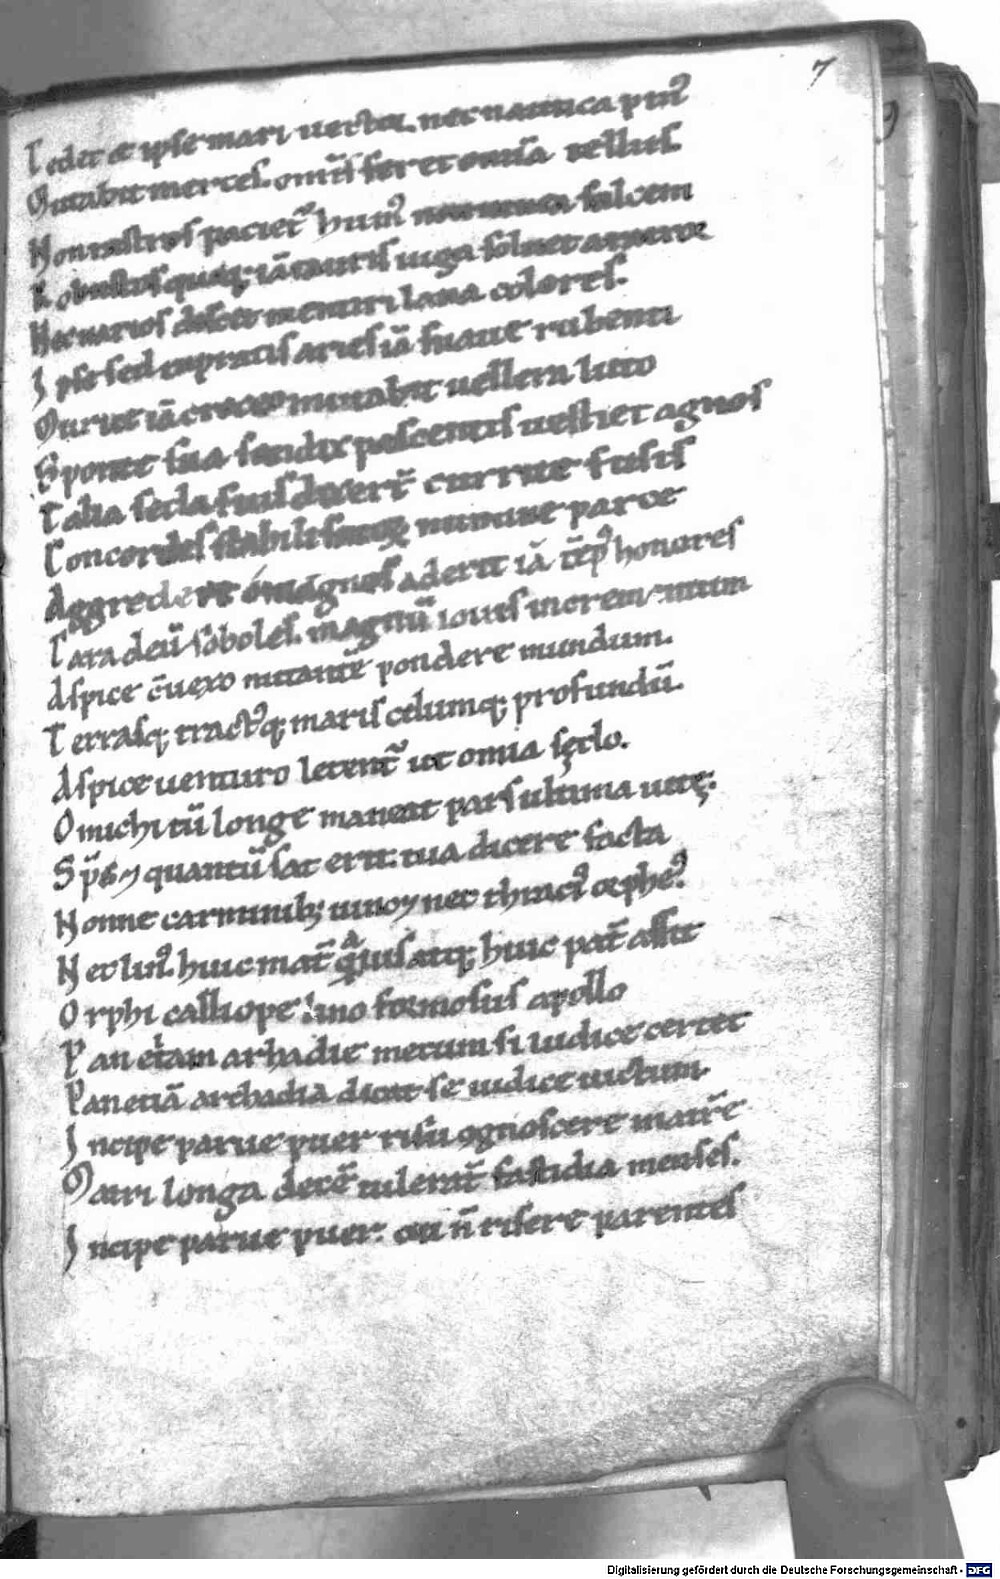 7
9
Cedet & ipse mari uector. nec nautica pin᷒
Mutabit merces. om̅is feret omnia tellus.
Non rastros paciet᷒ hum᷒ non uinea falcem
Robustus quoq; iā tauris iuga soluet arator
Nec uarios discet mentiri lana colores.
Ipse sed in pratis aries iā suaue rubenti
Murice iā croceo mutabit uellera luto
Sponte sua sandix pascentis uestiet agnos
Talia secla suis dixer̅t currite fusis
Concordes stabili fatoꝝ numine parce
Aggredere ó magnos aderit iā tēp᷒ honores
Cara deū soboles. magnū iouis incrementum
Aspice c̅uexo nutantē pondere mundum.
Terrasq; tract᷒q; maris celumq; profundū.
Aspice uenturo letent᷒ ut omnia sęclo.
O michi tū longe maneat pars ultima uitę.
Sp̅s & quantū sat erit tua dicere facta
Nonne carminib; uincꝫ nec thraci᷒ orphe᷒.
Nec lin᷒. huic mat̅ quāuis atq; huic pat̅ assit
Orphi calliope lino formosus apollo
Pan etiam arhadie mecum si iudice certet
Pan etiā archadia dicat se iudice uictum.
Incipe parue puer risu ꝯgnoscere matrē
Matri longa decē tulerūt fastidia menses.
Incipe parue puer. cui n̅ risere parentes
Digitalisierung gefördert durch die Deutsche Forschungsgemeinschaft - DFG